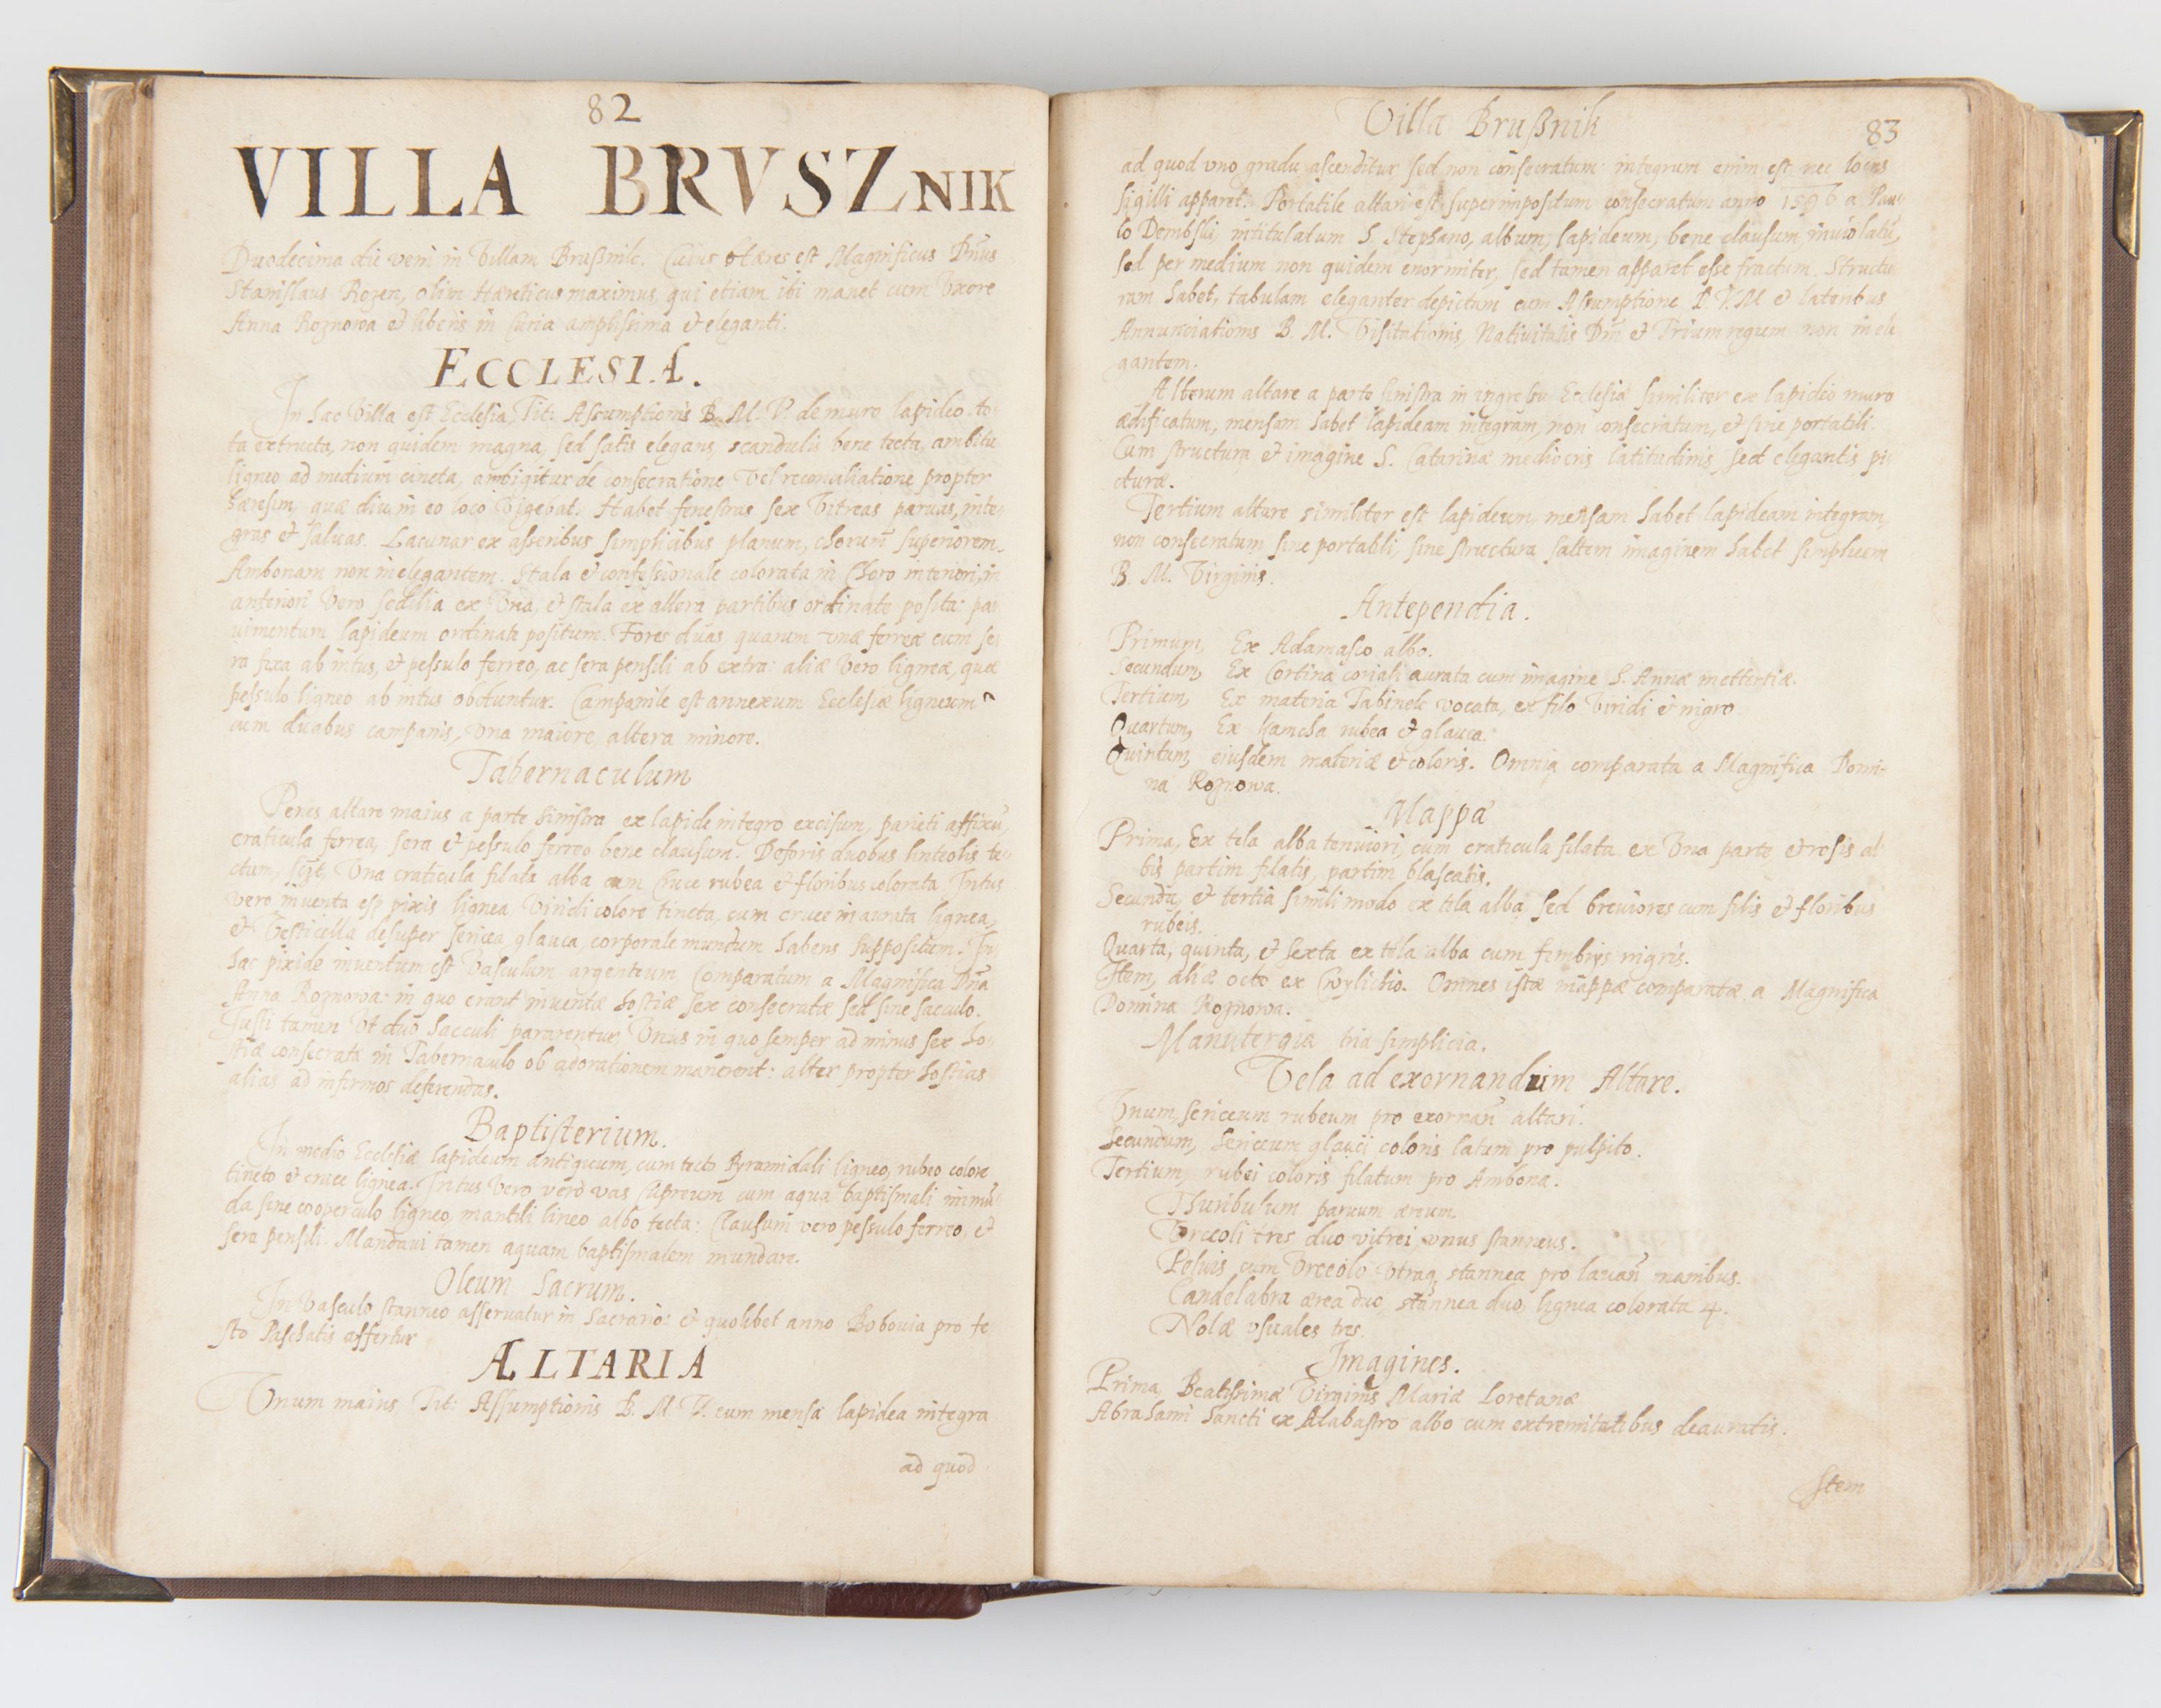 82
VILLA BRVSZNIK
Duodecima die veni in Villam Brußnik. Cuius Hæres est Magnificus Dn̄us
Stanislaus Rozen, olim Hæreticus maximus, qui etiam ibi manet cum Vxore
Anna Roznowa et liberis in Curia amplissima et eleganti.
ECCLESIA.
In hac Villa est Ecclesia, Tit: Assumptionis B. M. V. de muro lapideo to
ta extructa, non quidem magna, sed satis elegans, scandulis bene tecta, ambitu
ligneo ad medium cincta, ambigitur de consecratione vel reconciliatione propter
hæresim, quæ diu in eo loco Vigebat. Habet fenestras sex Vitreas paruas, inte-
gras et saluas. Lacunar ex asseribus simplicibus planum, chorum superiorem.
Ambonam non inelegantem. Stala et confessionale colorata in Choro interiori, in
anteriori Vero sedilia ex Vna, et stala ex altera partibus ordinate posita: pa
uimentum lapideum ordinate positum. Fores duas quarum unæ ferreæ cum se
ra fixa ab intus, et pessulo ferreo, ac sera pensili ab extra: aliæ Vero ligneæ, quæ
pessulo ligneo ab intus obduntur. Campanile est annexum Ecclesiæ ligneum
cum duabus campanis, Vna maiore altera minore.
Tabernaculum
Penes altare maius a parte sinistra ex lapide integro excisum, parieti affixū,
craticula ferrea, sera et pessulo ferreo bene clausum. Deforis duobus linteolis te
ctum, Vna craticula filata alba cum Cruce rubea et floribus colorata. Intus
vero inventa est pixis lignea Viridi colore tincta, cum cruce in aurata lignea,
et Vesticella desuper sericea glauca, corporale mundum habens suppositum. In
hac pixide inuentum est Vasculum argenteum Comparatum a Magnifica Dn̄a
Anna Roznowa: in quo erant inuentæ hostiæ sex consecratæ sed sine sacculo.
Iussi tamen Vt duo Sacculi pararentur, Vnus in quo semper ad minus sex ho-
stiæ consecrata in Tabernaculo ob adorationem manerent: alter propter hostias
alias ad infirmos deferendas.
Baptisterium.
In medio Ecclesiæ lapideum antiquum, cum tecto Pyramidali ligneo, rubeo colore
tincto et cruce lignea. Intus Vero vero vas Cupreum cum aqua baptismali immū-
da sine cooperculo ligneo, mantili lineo albo tecta: Clausum vero pessulo ferreo, et
sera pensili. Mandaui tamen aquam baptismalem mundare.
Oleum Sacrum.
In Vasculo stanneo asseruatur in Sacrario: et quolibet anno Bobouia pro fe
sto Paschatis affertur
ALTARIA
Vnum maius, Tit: Assumptionis B. M. V. cum mensa lapidea integra
ad quod
Villa Brußnik
83
ad quod vno gradu ascenditur sed non consecratum: integrum enim est nec locus
sigilli apparet. Portatile altari est superimpositum consecratum anno 1596 a Pau-
lo Dembski, intitulatum S. Stephano, album, lapideum, bene clausum, inuiolatū,
sed per medium non quidem enormiter, sed tamen apparet esse fractum. Structu
ram habet, tabulam eleganter depictam cum Assumptione B. V. M et lateribus
Annunciationis B. M. Visitationis, Natiuitatis Dn̄i et Trium regum non inele
gantem.
Alterum altare a parte sinistra in ingressu Ecclesiæ similiter ex lapideo muro
ædificatum, mensam habet lapideam integram, non consecratum, et sine portatili.
Cum structura et imagine S. Catarinæ mediocris latitudinis, sed elegantis pi
cturæ.
Tertium altare similiter est lapideum, mensam habet lapideam integram,
non consecratum sine portatili, sine structura saltem imaginem habet simplicem
B. M. Virginis.
Antependia.
Primum, Ex Adamasco albo.
Secundum, Ex Cortina coriali aurata cum imagine S. Annæ mettertiæ.
Tertium, Ex materia Tabinek vocata, ex filo Viridi et nigro
Quartum, Ex Kamcha rubea et glauca.
Quintum, eiusdem materiæ et coloris. Omnia comparata a Magnifica Domi-
na Roznowa.
Mappæ
Prima, Ex tela alba tenuiori, cum craticula filata ex Vna parte, et rosis al
bis partim filatis, partim blascatis.
Secunda, et tertia simili modo ex tela alba, sed breuiores cum filis et floribus
rubeis.
Quarta, quinta, et sexta ex tela alba cum fimbrijs nigris.
Item, aliæ octo ex Cwylichio. Omnes istæ mappæ comparatæ a Magnifica
Domina Roznowa.
Manutergia tria simplicia.
Vela ad exornandum Altare.
Vnum, sericeum rubeum pro exornan̄ altari.
Secundum, Sericeum glauci coloris latum pro pulpito.
Tertium, rubei coloris filatum pro Ambona.
Thuribulum paruum æreum.
Vrceoli tres duo vitrei, vnus stanneus.
Peluis cum Vrceolo vtraq stannea pro lauan̄ manibus.
Candelabra ærea duo, stannea duo, lignea colorata 4.
Nolæ vsuales tres.
Imagines.
Prima, Beatissimæ Virginis Mariæ Loretanæ
Abrahami Sancti ex Alabastro albo cum extremitatibus deauratis.
Item